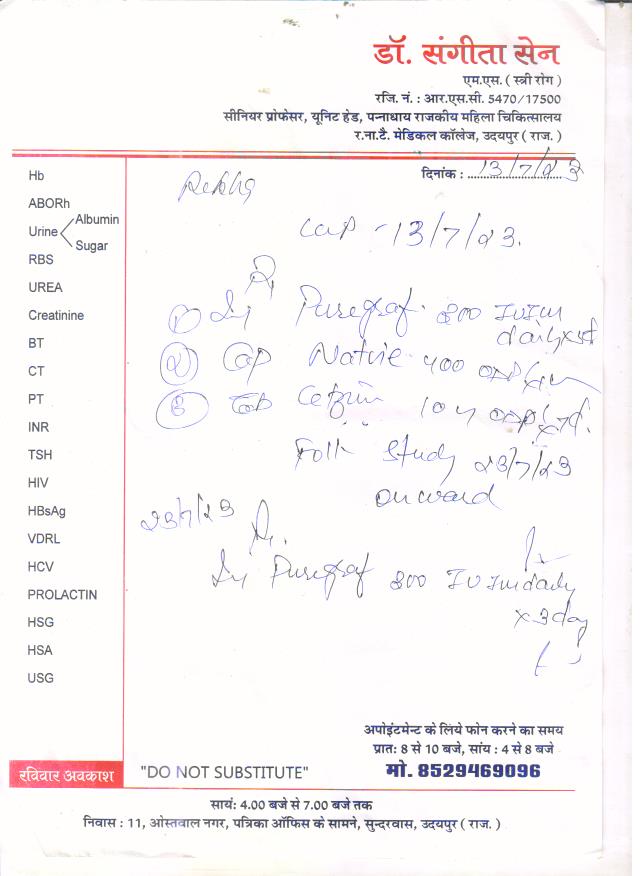 डॉ. संगीता सेन
एम.एस. ( स्त्री रोग )
रजि. नं. : आर.एस.सी. 5470/17500
सीनियर प्रोफेसर, यूनिट हेड, पन्नाधाय राजकीय महिला चिकित्सालय
र.ना.टै. मेडिकल कॉलेज, उदयपुर ( राज. )
दिनांक : 13/7/23
Hb
ABORh
Urine Albumin
Sugar
RBS
UREA
Creatinine
BT
CT
PT
INR
TSH
HIV
HBsAg
VDRL
HCV
PROLACTIN
HSG
HSA
USG
Rekha
LMP - 13/7/23.
① Inj Puregraf 300 IU IM
daily
② Cap 400
③ Tab 10
Foll. Study 23/7/23
onward
23/7/23
Inj Puregraf 300 IU IM daily
x 3 day
अपोइंटमेन्ट के लिये फोन करने का समय
प्रात: 8 से 10 बजे, सांय : 4 से 8 बजे
मो. 8529469096
रविवार अवकाश
"DO NOT SUBSTITUTE"
सायं: 4.00 बजे से 7.00 बजे तक
निवास : 11, ओस्तवाल नगर, पत्रिका ऑफिस के सामने, सुन्दरवास, उदयपुर ( राज. )